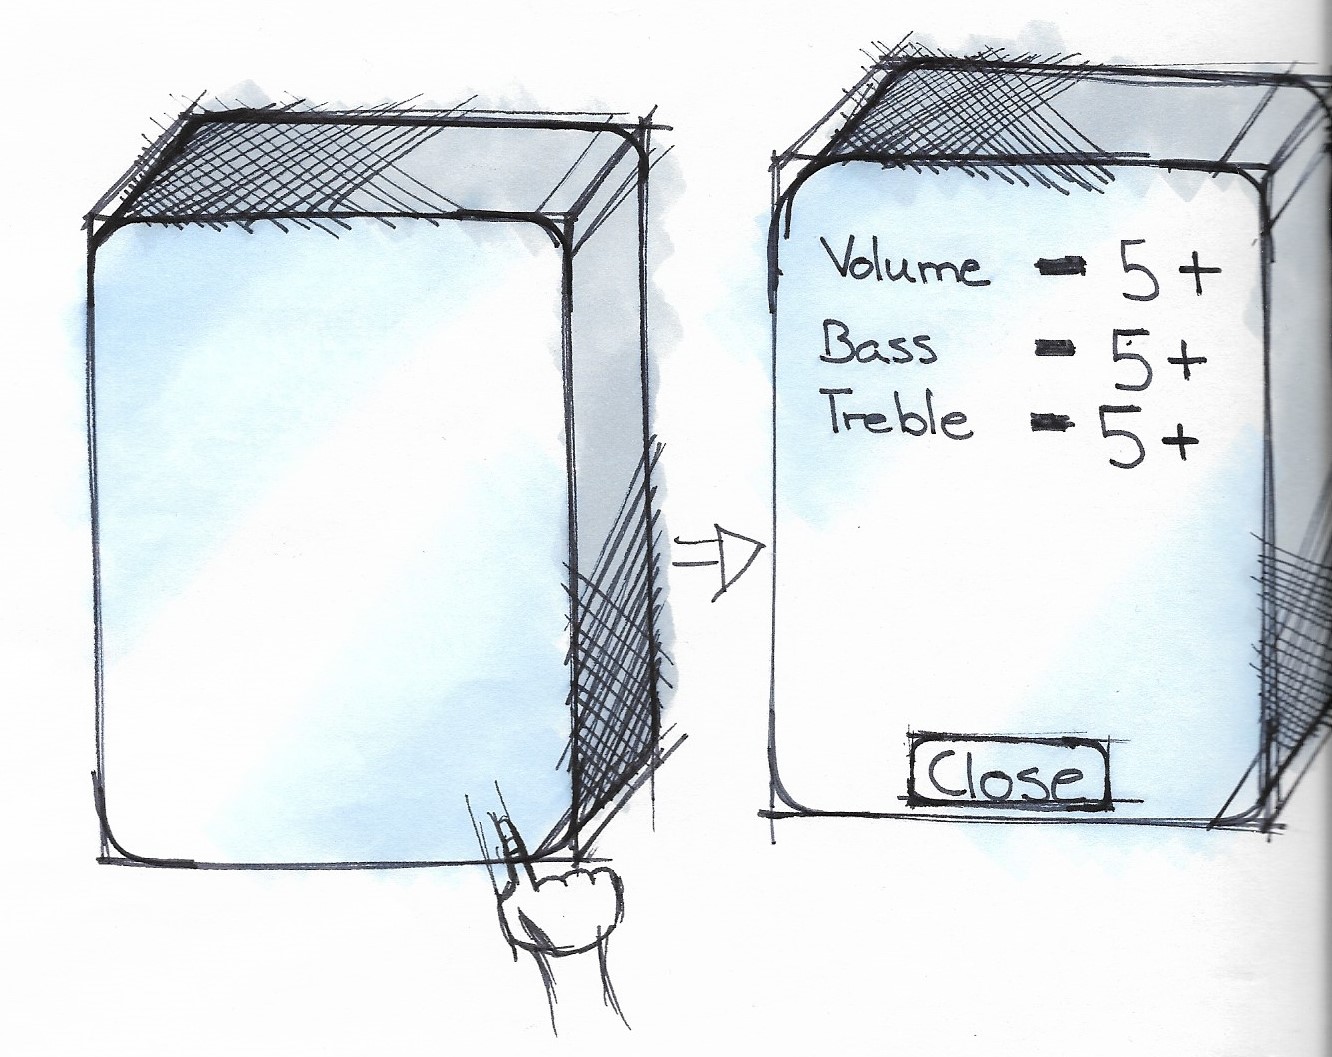 Volume - 5 +
Bass - 5 +
Treble - 5 +
Close